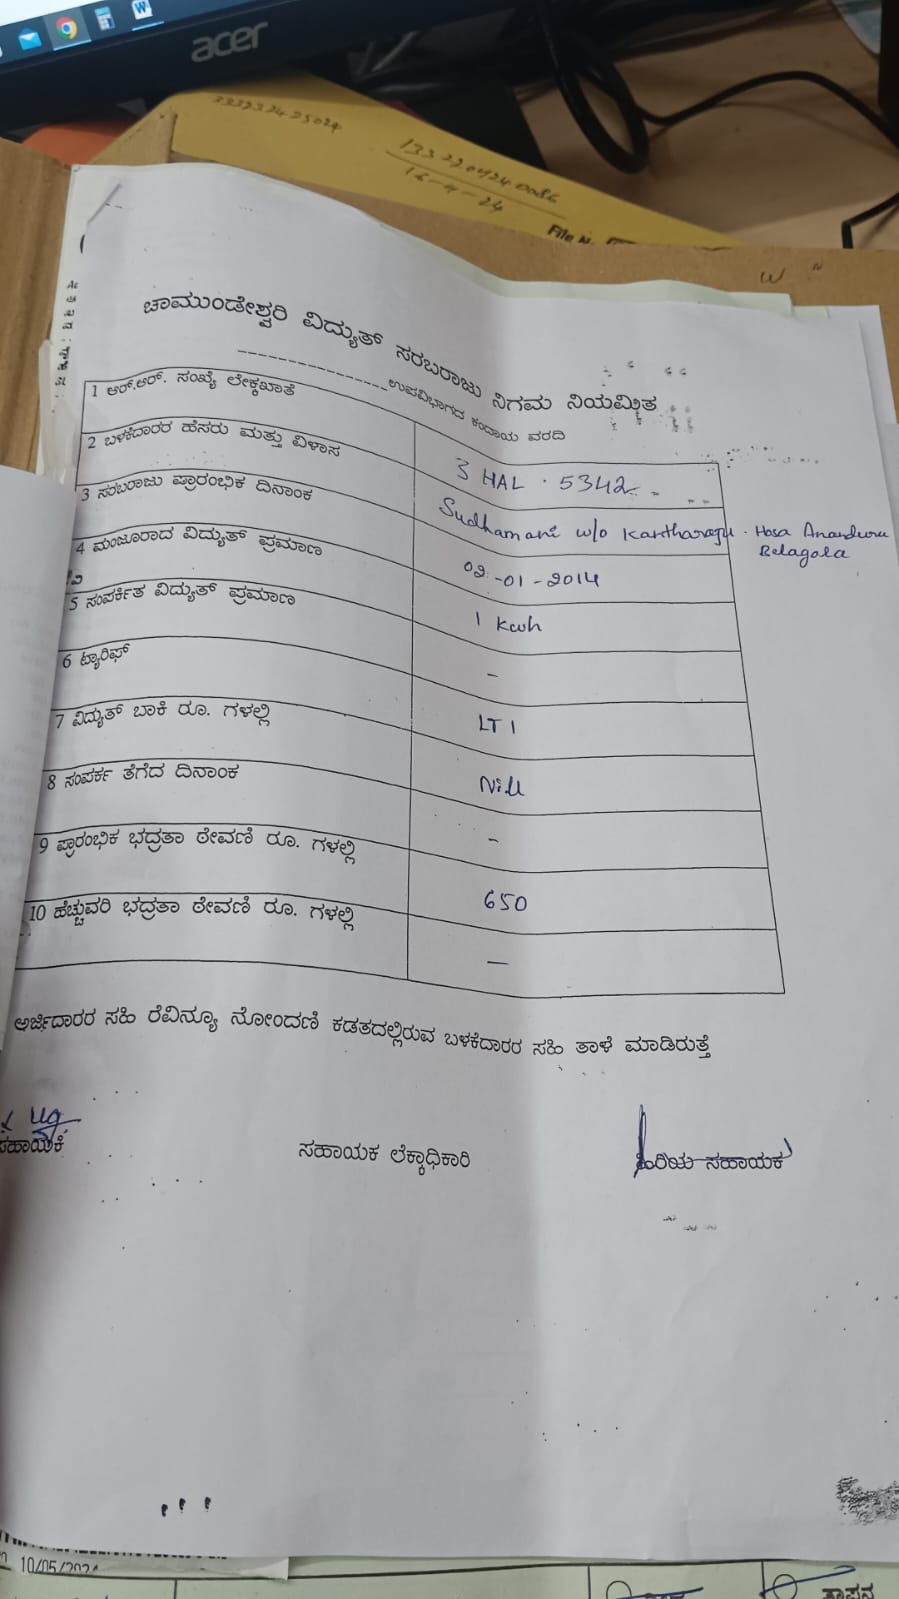 acer
333937425024
1332209240086
16-4-24
File N.
ಚಾಮುಂಡೇಶ್ವರಿ ವಿದ್ಯುತ್ ಸರಬರಾಜು ನಿಗಮ ನಿಯಮಿತ
-----------------ಉಪವಿಭಾಗದ ಕಂದಾಯ ವರದಿ
1 ಆರ್.ಆರ್. ಸಂಖ್ಯೆ ಲೆಕ್ಕಖಾತೆ
3 HAL . 5342
2 ಬಳಕೆದಾರರ ಹೆಸರು ಮತ್ತು ವಿಳಾಸ
Sudhamani w/o Kantharaju . Hosa Ananduru
Belagola
3 ಸರಬರಾಜು ಪ್ರಾರಂಭಿಕ ದಿನಾಂಕ
02-01-2014
4 ಮಂಜೂರಾದ ವಿದ್ಯುತ್ ಪ್ರಮಾಣ
1 Kwh
5 ಸಂಪರ್ಕಿತ ವಿದ್ಯುತ್ ಪ್ರಮಾಣ
-
6 ಟ್ಯಾರಿಫ್
LT 1
7 ವಿದ್ಯುತ್ ಬಾಕಿ ರೂ. ಗಳಲ್ಲಿ
Nill
8 ಸಂಪರ್ಕ ತೆಗೆದ ದಿನಾಂಕ
-
9 ಪ್ರಾರಂಭಿಕ ಭದ್ರತಾ ಠೇವಣಿ ರೂ. ಗಳಲ್ಲಿ
650
10 ಹೆಚ್ಚುವರಿ ಭದ್ರತಾ ಠೇವಣಿ ರೂ. ಗಳಲ್ಲಿ
-
ಅರ್ಜಿದಾರರ ಸಹಿ ರೆವಿನ್ಯೂ ನೋಂದಣಿ ಕಡತದಲ್ಲಿರುವ ಬಳಕೆದಾರರ ಸಹಿ ತಾಳೆ ಮಾಡಿರುತ್ತೆ
ಸಹಾಯಕಿ
ಸಹಾಯಕ ಲೆಕ್ಕಾಧಿಕಾರಿ
ಹಿರಿಯ ಸಹಾಯಕ
10/05/2024